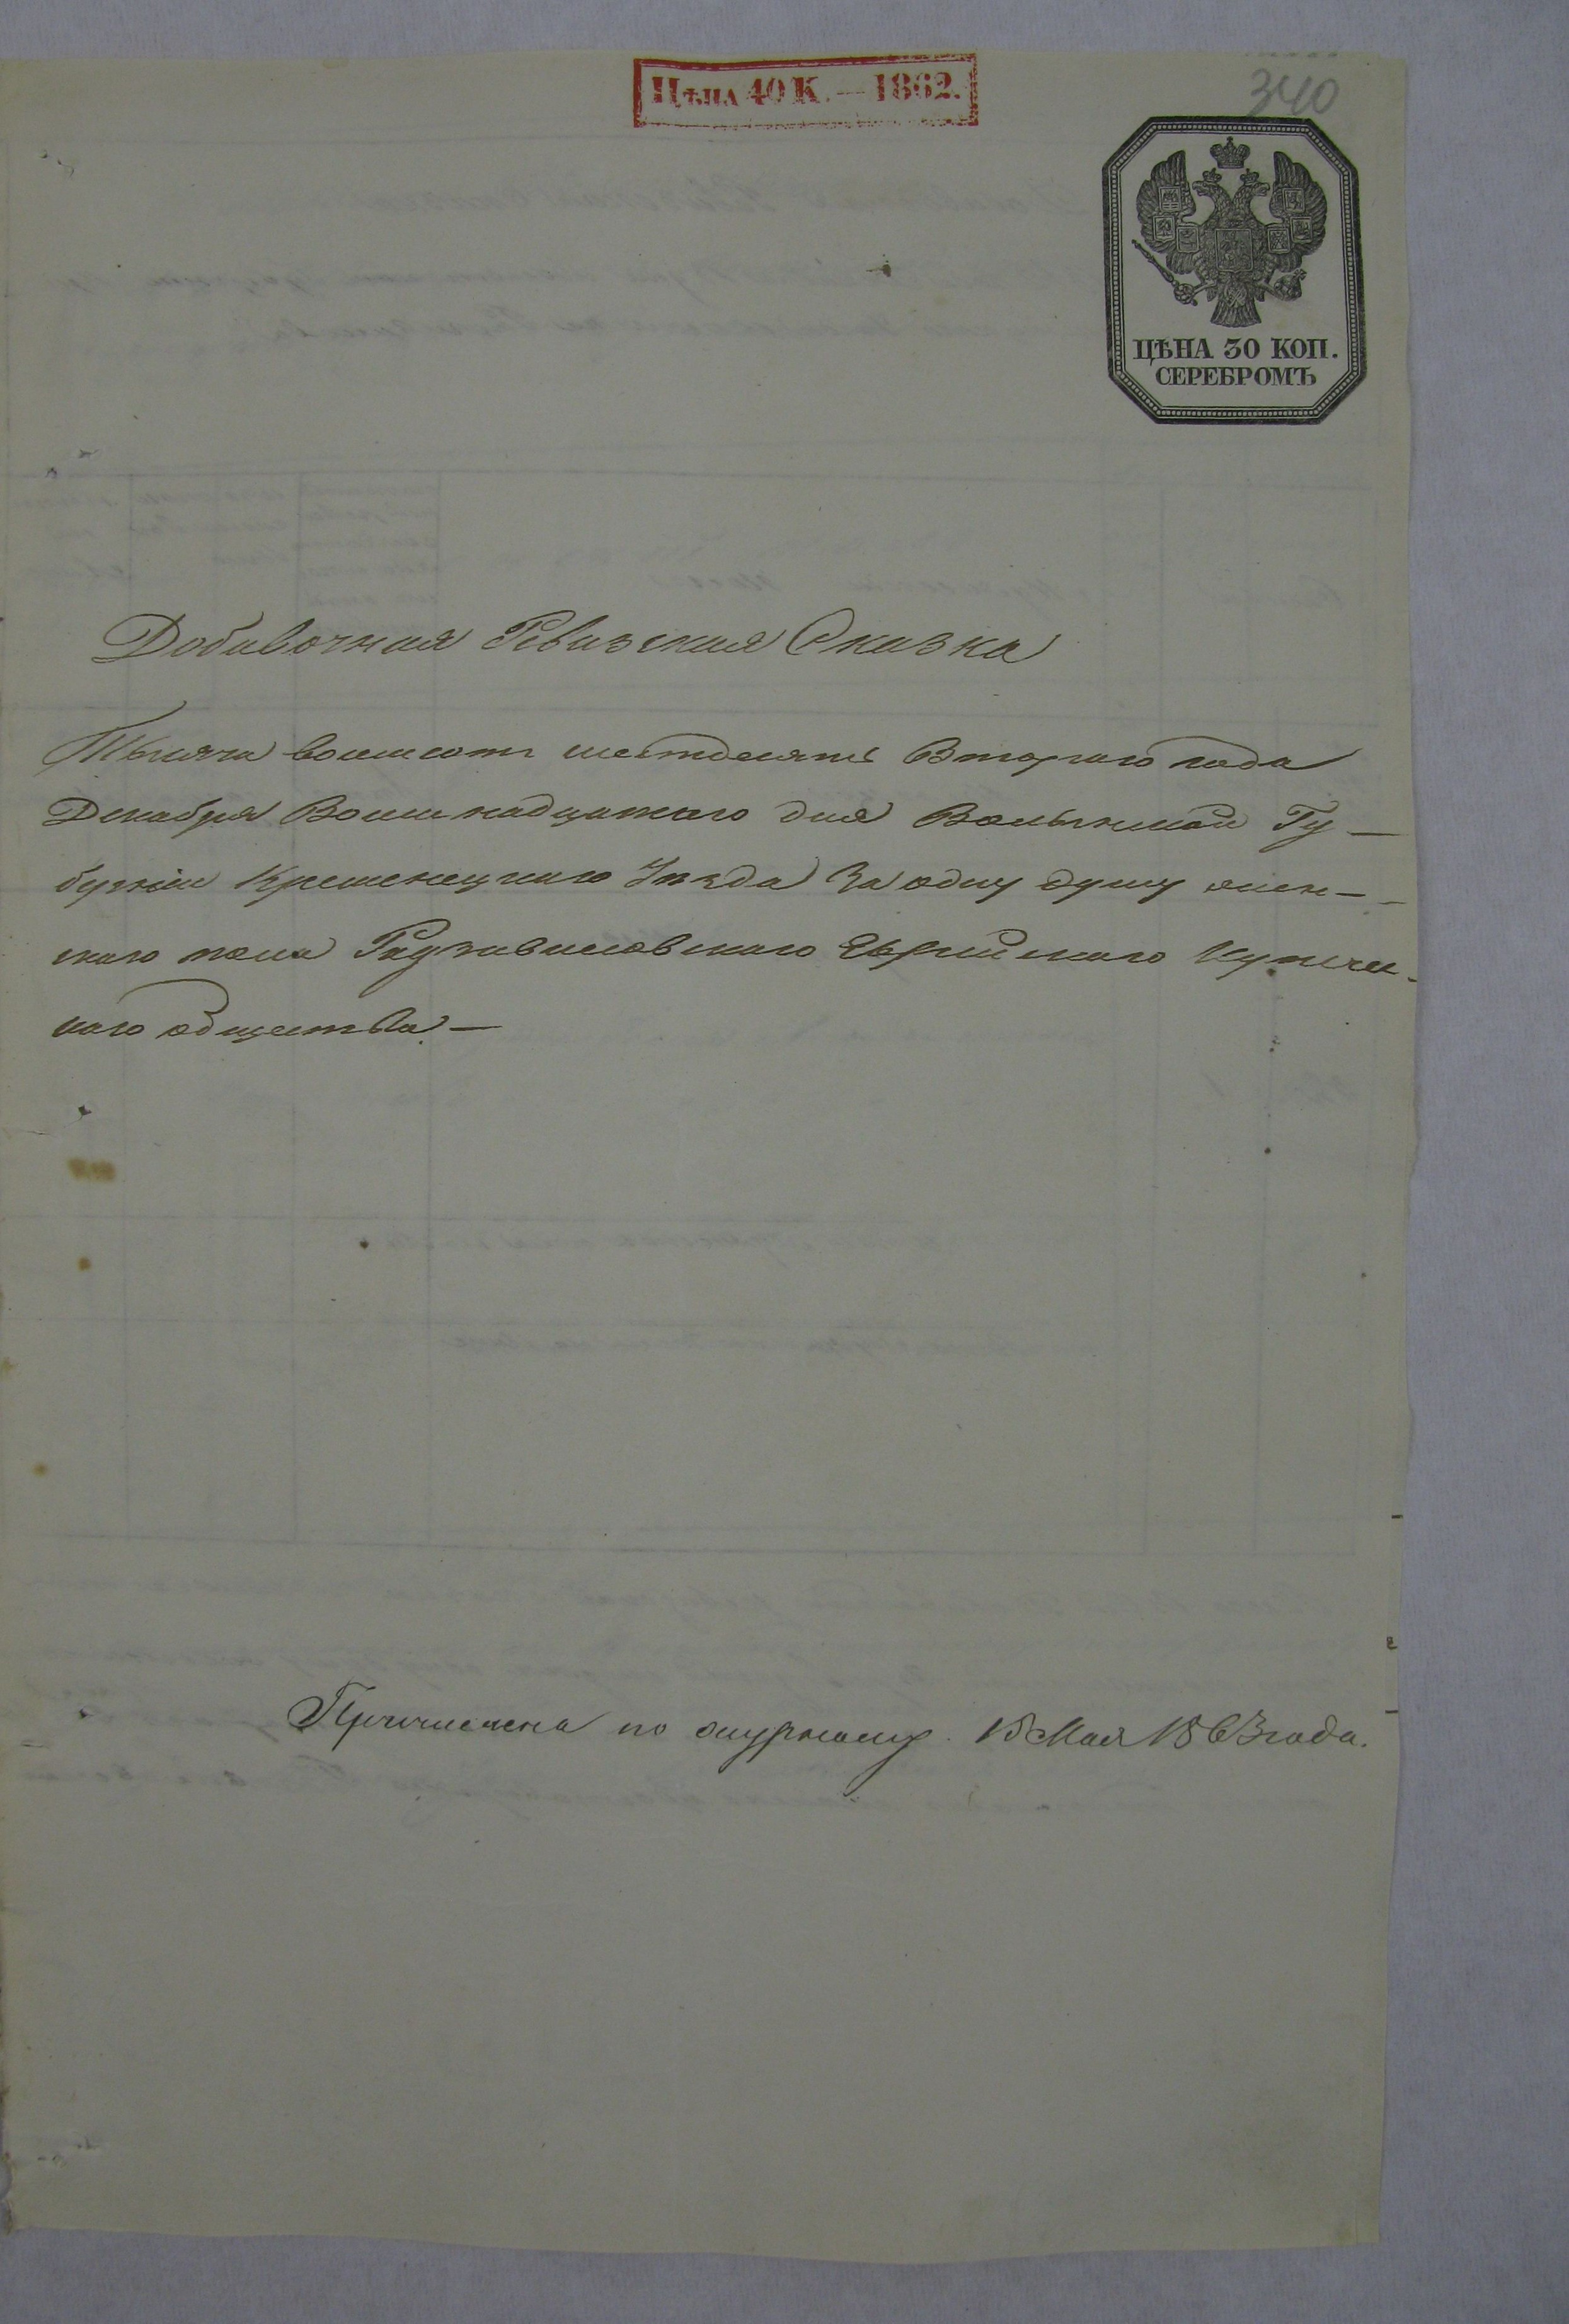 Цѣна 40 К. — 1862.
340
ЦѢНА 30 КОП.
СЕРЕБРОМЪ
Добавочная Ревизская Сказка
Тысяча восемсотъ шестдесятъ Втораго года
Декабря Восемнадцатаго дня Волынской Гу—
берніи Кременецкаго Уѣзда За одну душу жен—
скаго пола Радзивиловскаго Еврейскаго Купечес-
каго общества.—
Причислена по журналу 15 Мая 1863 года.